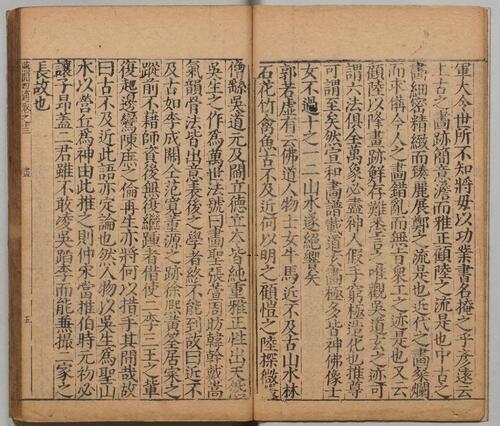 軍大令世所不知將毋以功業書名掩之乎彥遠云
上古之畫跡簡意澹而雅正顧陸之流是也中古之
畫細密精緻而臻麗展鄭之流是也近代之畫粲爛
而求備今人之畫錯亂而無旨衆工之迹是也又云
顧陸以降畫跡鮮存難悉詳之唯觀吳道玄之迹可
謂六法俱全萬象必盡神人假手窮極造化也推尊
可謂至矣然宣和畫譜載道玄畫極多皆神佛像士
女不過十之一二山水遂絕響矣
郭若虛有云佛道人物士女牛馬近不及古山水林
石花竹禽魚古不及近何以明之顧愷之陸探微張
僧繇吳道元及閻立德立本皆純重雅正性出天然
吳生之作為萬世法號曰畫聖張萱周昉韓幹戴嵩
氣韻骨法皆出意表後之學者終不能到故曰近不
及古如李成關仝范寬董源之跡徐熙黃筌居寀之
蹤前不藉師資後無復繼踵者借使二李三王之輩
復起邊鸞陳庶之倫再生亦將何以措手其間哉故
曰古不及近此語亦定論也然人物以吳生為聖山
水以營丘為神由此推之則仲宋當推伯時元初必
讓子昂蓋二君雖不敢凌吳躋李而能兼撮二家之
長故也
畫
五